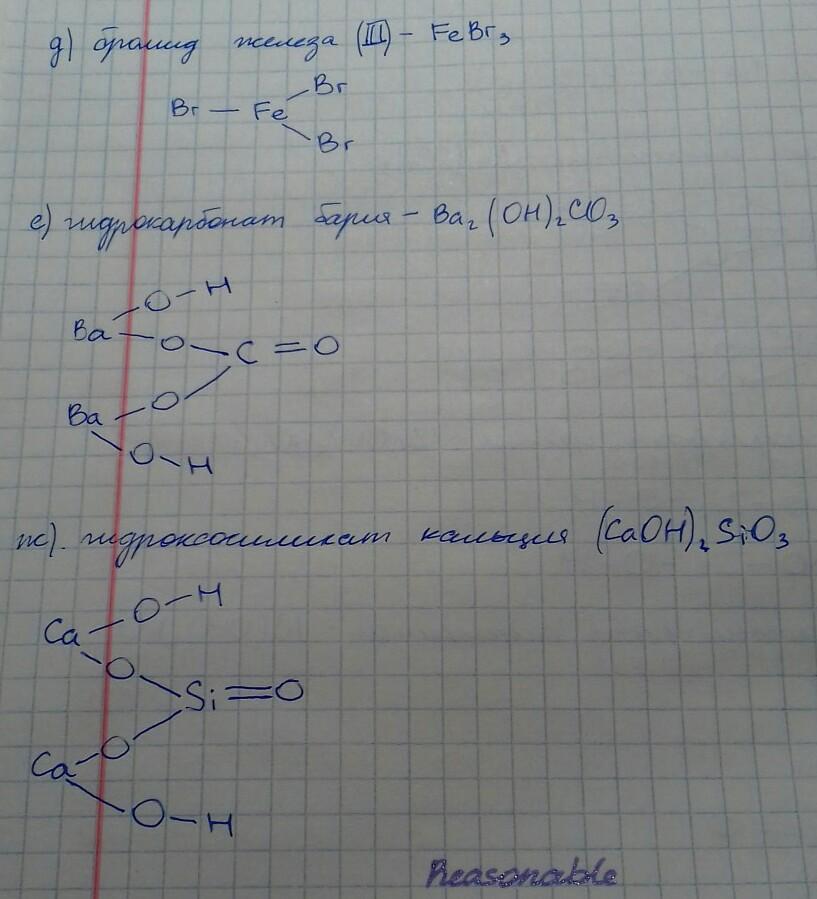 д) бромид железа (III) – FeBr₃
Br
Br – Fe
Br
е) гидрокарбонат бария – Ba₂(OH)₂CO₃
O – H
Ba
O
C = O
Ba
O
O – H
ж). гидроксосиликат кальция (CaOH)₂SiO₃
O – H
Ca
O
Si = O
O
Ca
O – H
Reasonable